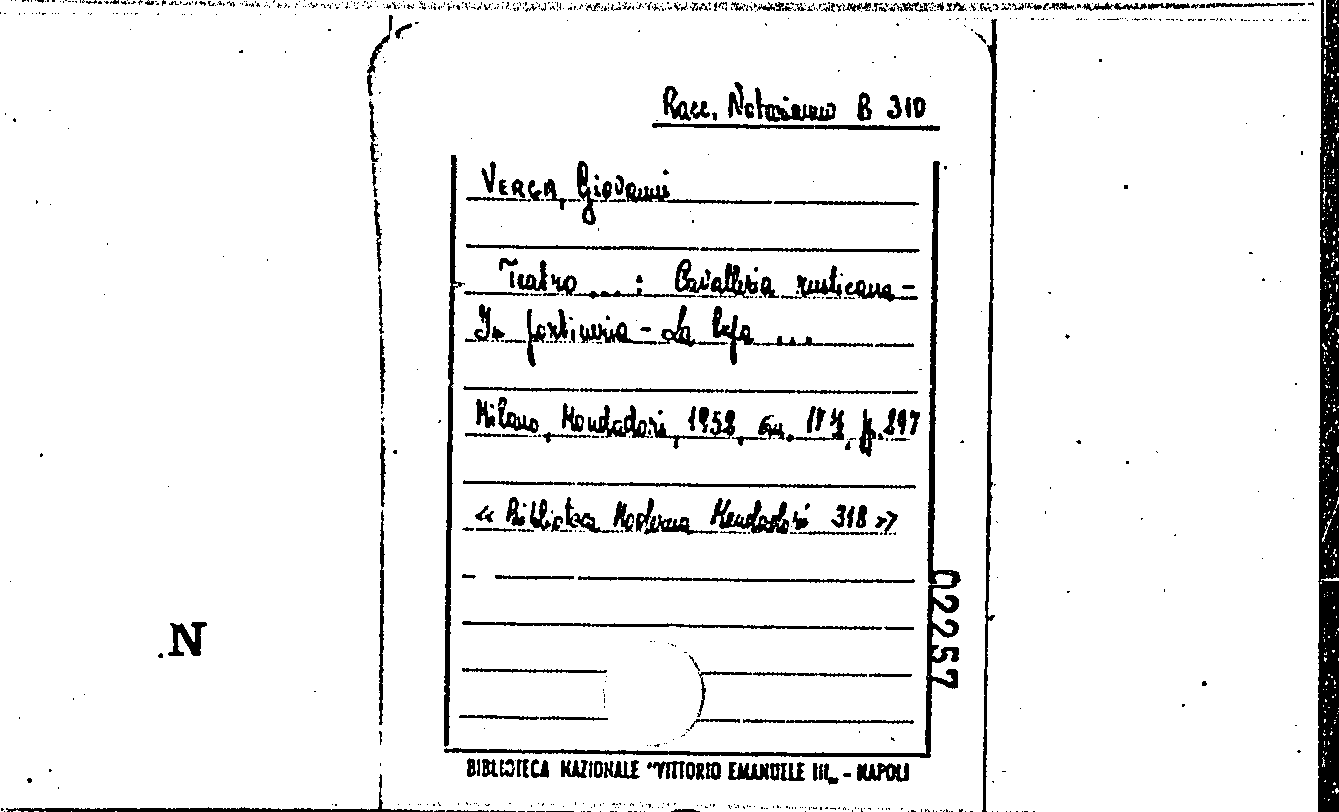 Racc. Notarianni B 310
VERGA, Giovanni
Teatro ... : Cavalleria rusticana -
In portineria - La Lupa ...
Milano, Mondadori, 1952, cm. 17½, p. 297
« Biblioteca Moderna Mondadori 318 »
02257
N
BIBLIOTECA NAZIONALE "VITTORIO EMANUELE III„ - NAPOLI